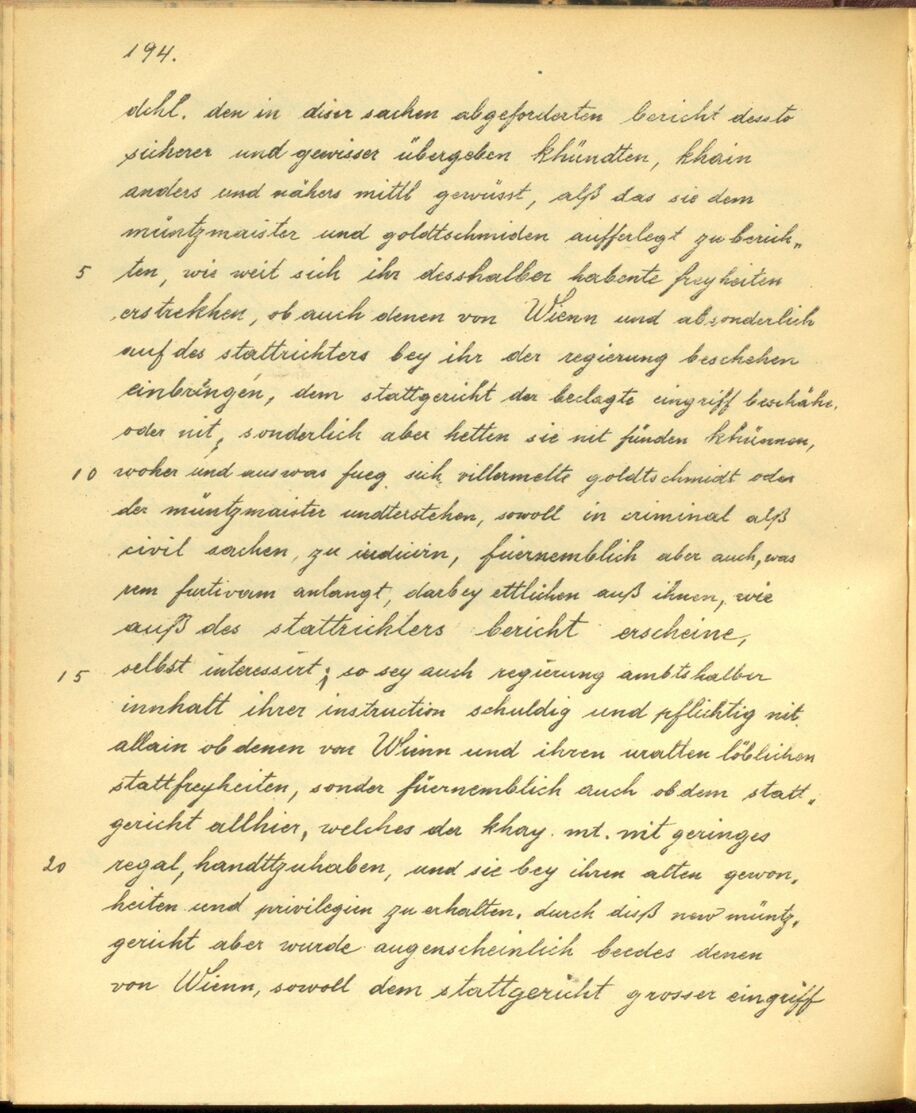 194.
dchl. den in diser sachen abgeforderten bericht dessto
sicherer und gewisser übergeben khündten, khain
anders und nähers mittl gewüsst, alß das sie dem
müntzmaister und goldtschmiden aufferlegt zu berich„
5 ten, wie weit sich ihr desshalber habente freyheiten
erstrekhen, ob auch denen von Wienn und absonderlich
auf des stattrichters bey ihr der regierung beschehen
einbringen, dem stattgericht der beclagte eingriff beschähe,
oder nit; sonderlich aber hetten sie nit fünden khünnen,
10 woher und aus was fueg sich villermelte goldtschmidt oder
der müntzmaister undterstehen, sowoll in criminal alß
civil sachen, zu iudicirn, füernemblich aber auch, was
rem furtivam anlangt, darbey ettlichen auß ihnen, wie
auß des stattrichters bericht erscheine,
15 selbst interessirt; so sey auch regierung ambtshalber
innhalt ihrer instruction schuldig und pflichtig nit
allain ob denen von Wienn und ihren uralten löblichen
stattfreyheiten, sonder füernemblich auch ob dem statt„
gericht allhier, welches der khay. mt. nit geringes
20 regal, handtzuhaben, und sie bey ihren alten gewon„
heiten und privilegien zu erhalten. durch diß new müntz„
gericht aber wurde augenscheinlich beedes denen
von Wienn, sowoll dem stattgericht grosser eingriff